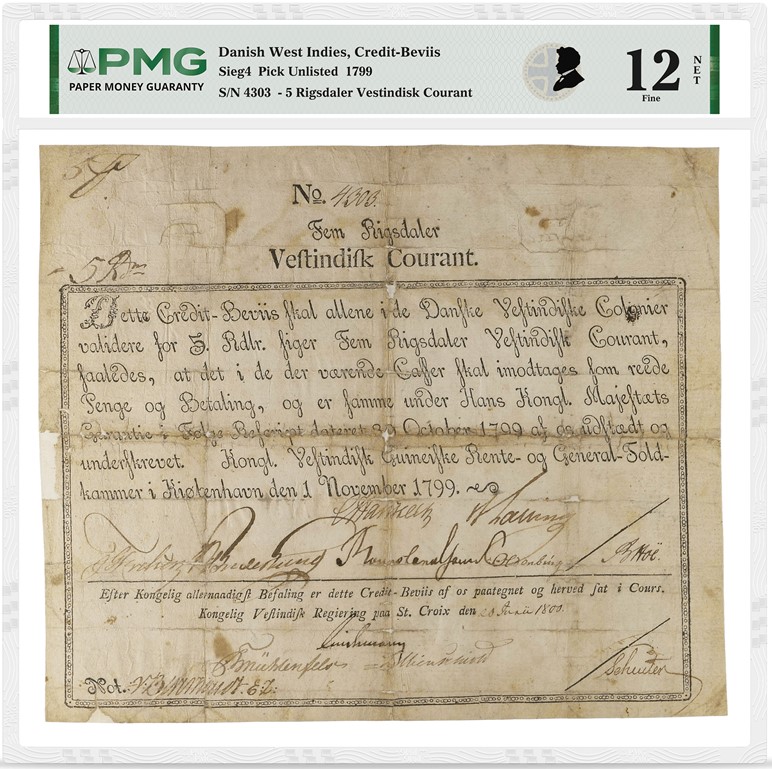 PMG
PAPER MONEY GUARANTY
Danish West Indies, Credit-Beviis
Sieg4 Pick Unlisted 1799
S/N 4303 - 5 Rigsdaler Vestindisk Courant
12
NET
Fine
No. 4303.
Fem Rigsdaler
Veſtindiſk Courant.
5 Rdr
Dette Credit-Beviis ſkal allene i de Danſke Veſtindiſke Colonier
validere for 5. Rdlr. ſiger Fem Rigsdaler Veſtindiſk Courant,
ſaaledes, at det i de der værende Caſſer ſkal imodtages ſom reede
Penge og Betaling, og er ſamme under Hans Kongl. Majeſtæts
Garantie i Følge Reſcript dateret October 1799 af os udſtædt og
underſkrevet. Kongl. Veſtindiſk Guineiſke Rente- og General-Told-
kammer i Kiøbenhavn den 1 November 1799.
Efter Kongelig allernaadigſt Befaling er dette Credit-Beviis af os paategnet og herved ſat i Cours.
Kongelig Veſtindiſk Regiering paa St. Croix den 1800.
Lindemann
Mühlenfels
Scheuten
Not.